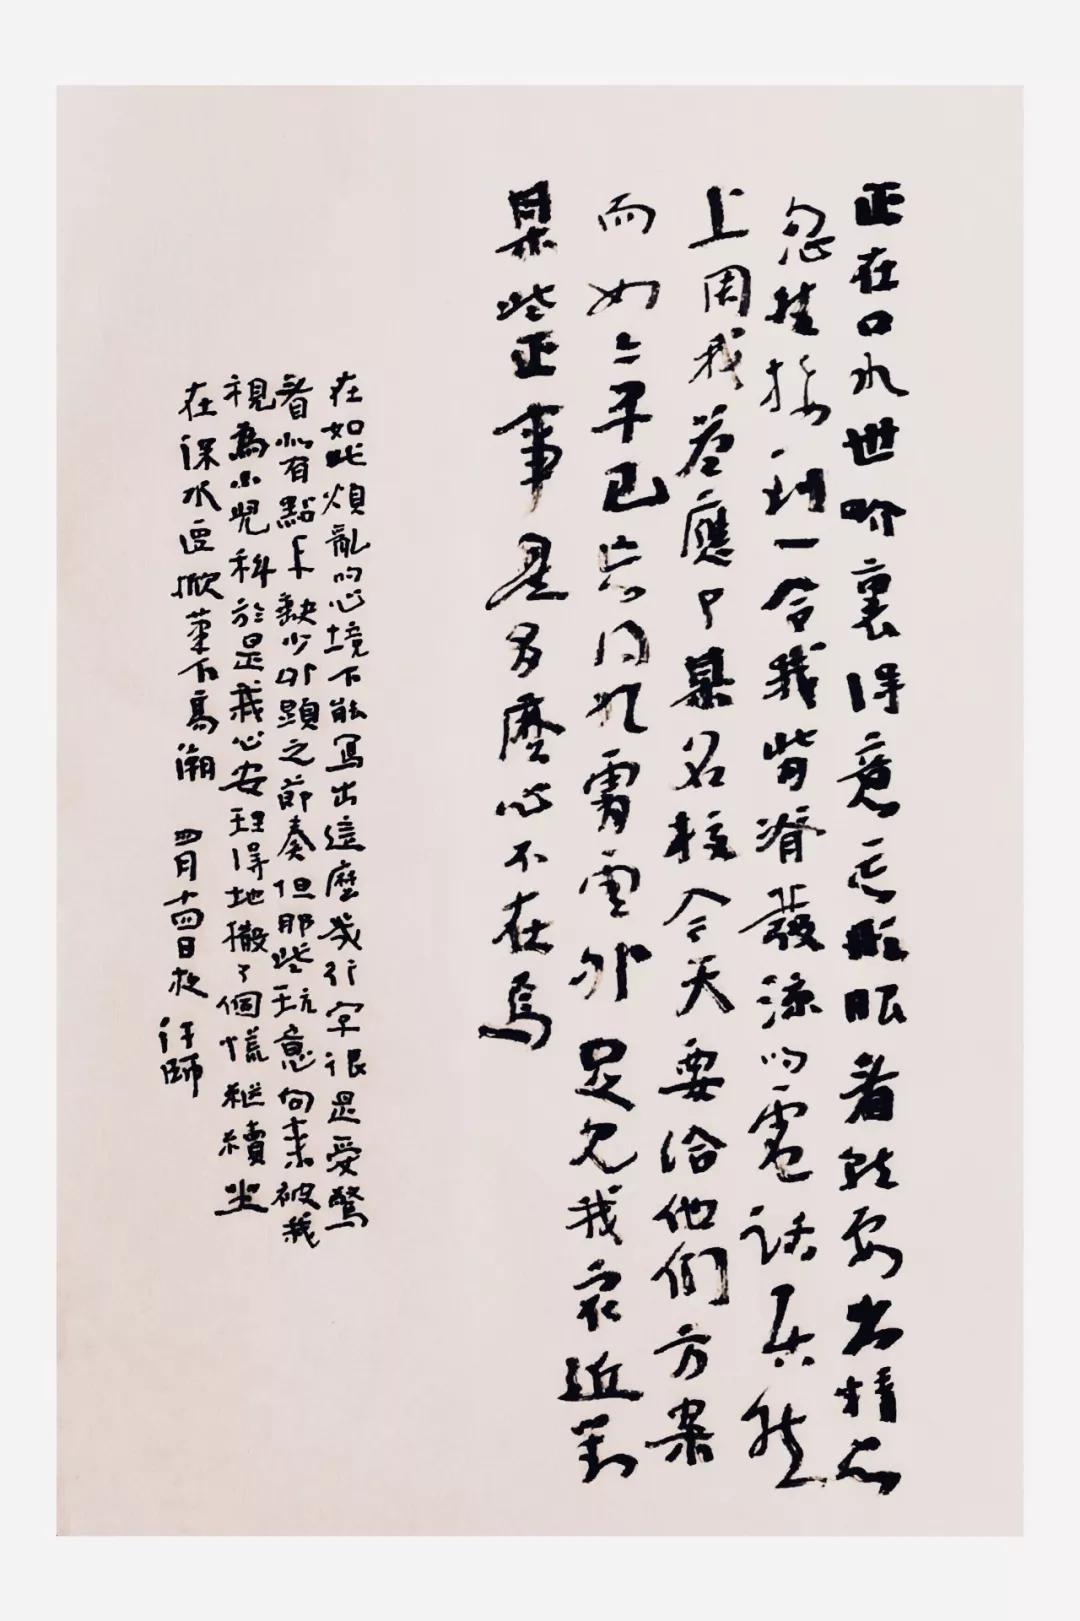 正在口水世界裏得意忘形眼看就要出精品
忽然接到一令我背脊發涼的電話居然
上周我答應了某名校今天要給他們方案
而如今早已忘同九霄雲外足見我最近對
某些正事是多麼心不在焉
在如此煩亂的心境下能寫出這麼幾行字很是受驚
看似有點卡缺少叩題之節奏但那些玩意向來被我
視為小兒科於是我心安理得地撒了個慌繼續坐
在深水區掀下高潮 四月十四日夜 許師